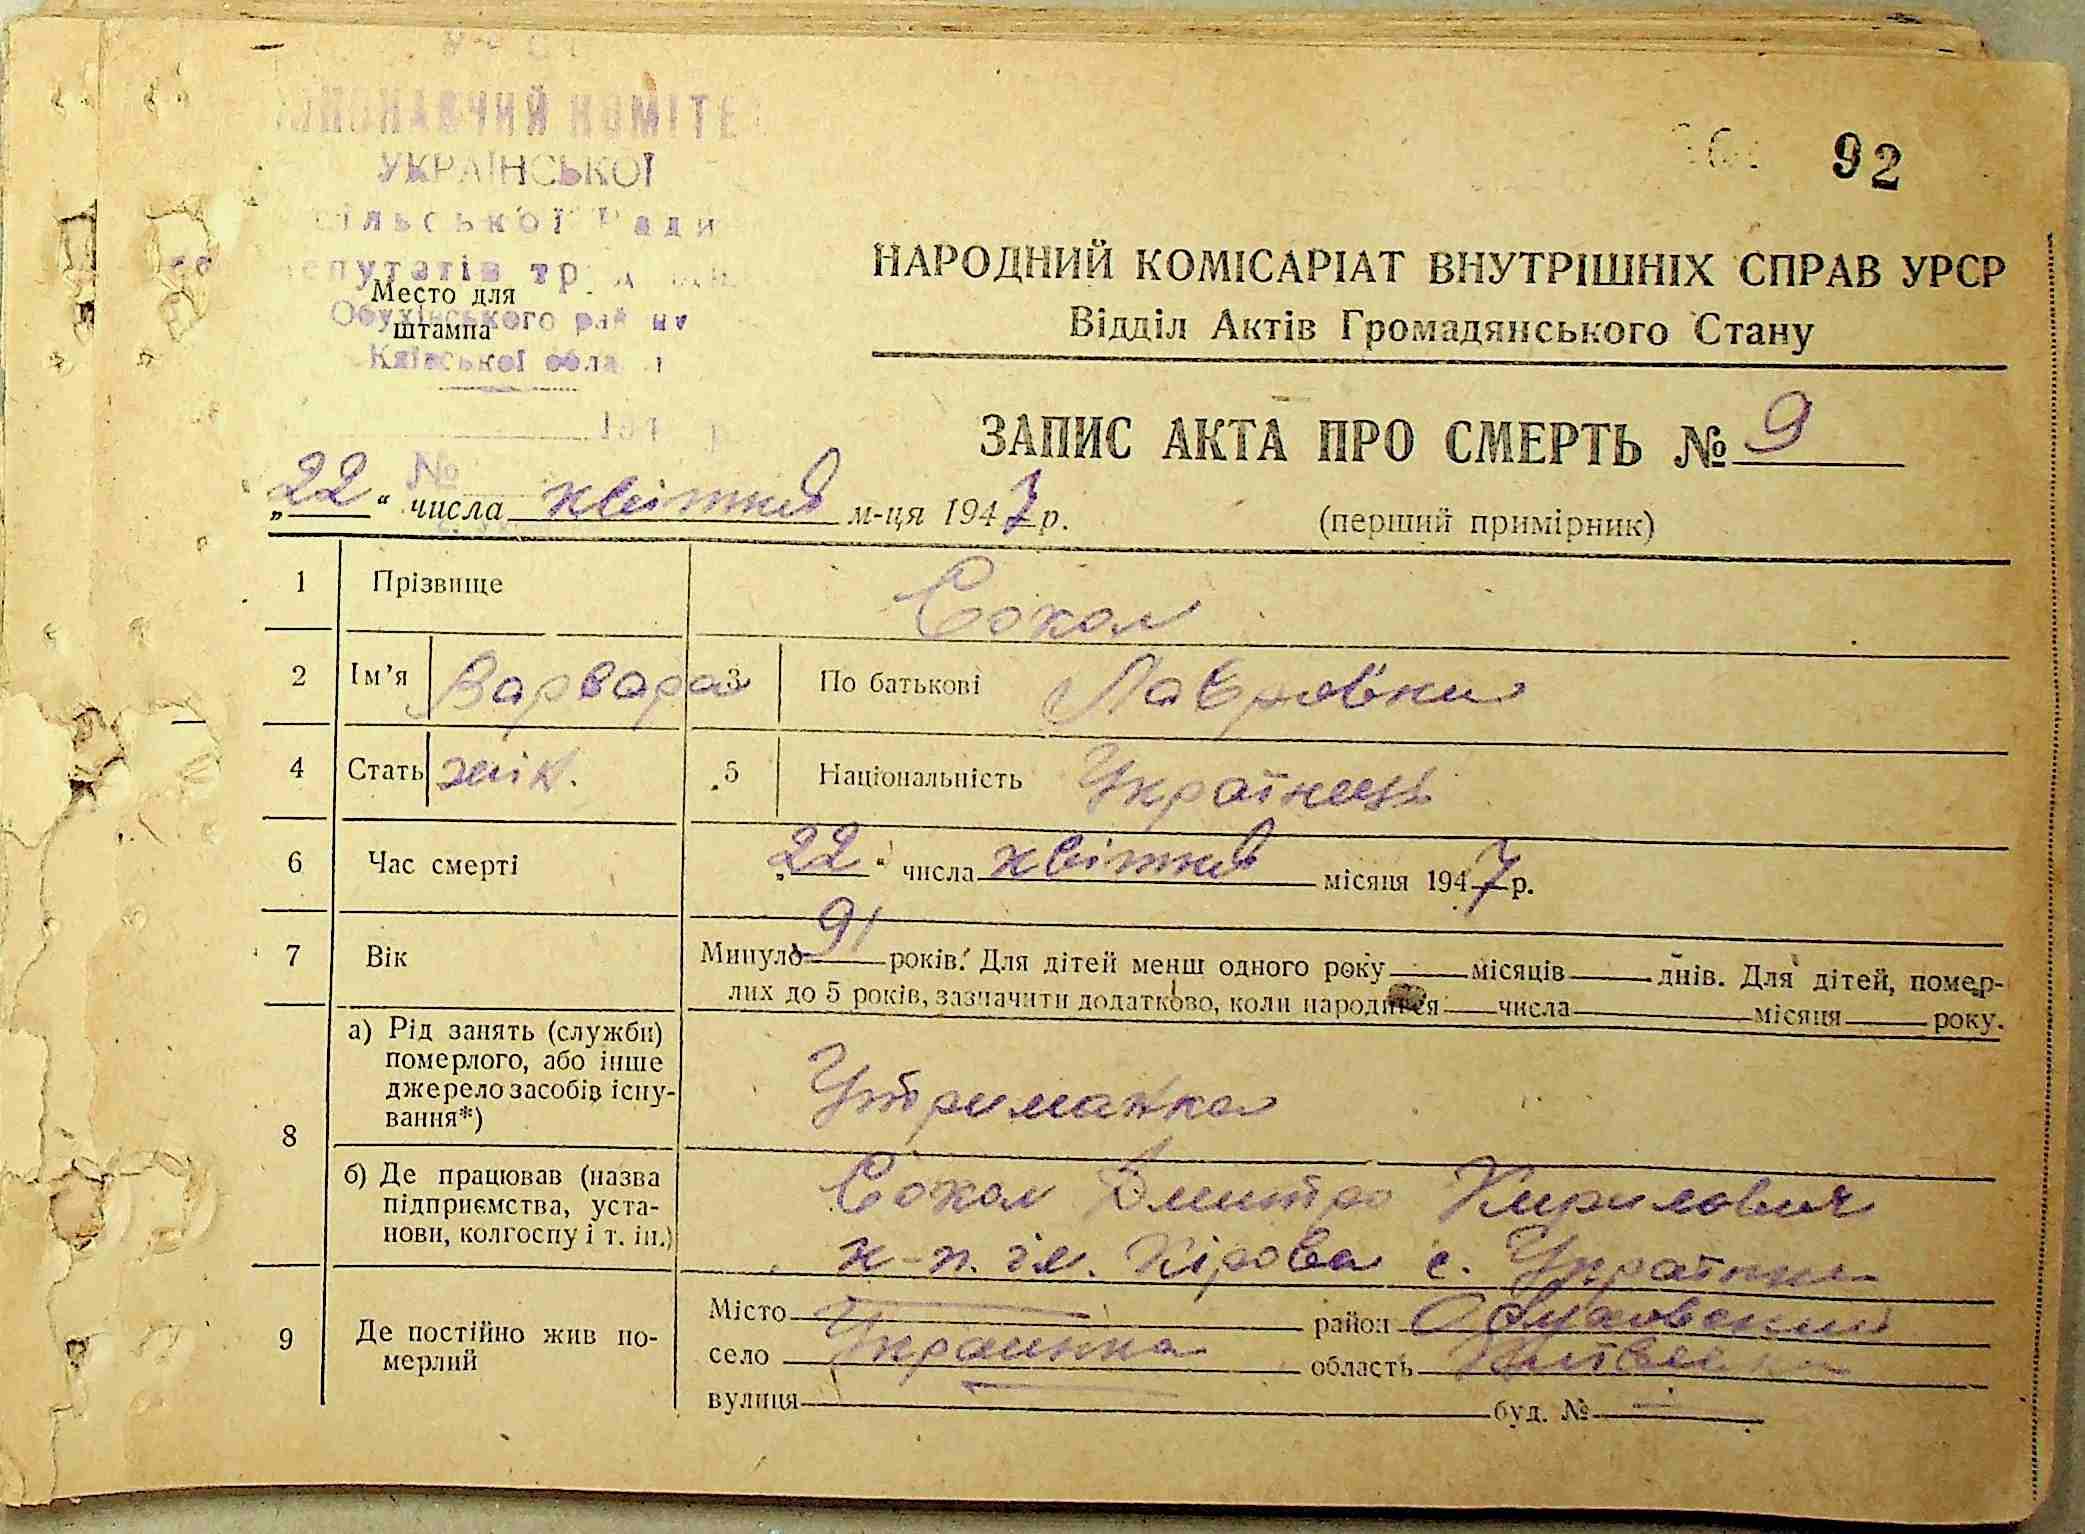 92
УКРАЇНСЬКОЇ
Место для
штампа
НАРОДНИЙ КОМІСАРІАТ ВНУТРІШНІХ СПРАВ УРСР
Відділ Актів Громадянського Стану
ЗАПИС АКТА ПРО СМЕРТЬ № 9
(перший примірник)
№
„22“ числа квітня м-ця 1947 р.
1 Прізвище Сокол
2 Ім’я Варвара 3 По батькові Лавровна
4 Стать жін. 5 Національність Українець
6 Час смерті „22“ числа квітня місяця 1947 р.
7 Вік Минуло 91 років. Для дітей менш одного року місяців днів. Для дітей, помер-
лих до 5 років, зазначити додатково, коли народився числа місяця року.
8 а) Рід занять (служби)
померлого, або інше
джерело засобів існу-
вання*)
Утриманка
б) Де працював (назва
підприємства, уста-
нови, колгоспу і т. ін.)
Сокол Дмитро Кирилович
к-п. ім. Кірова с. Українка
9 Де постійно жив по-
мерлий
Місто район Обуховский
село Украинка область Київська
вулиця буд. № —